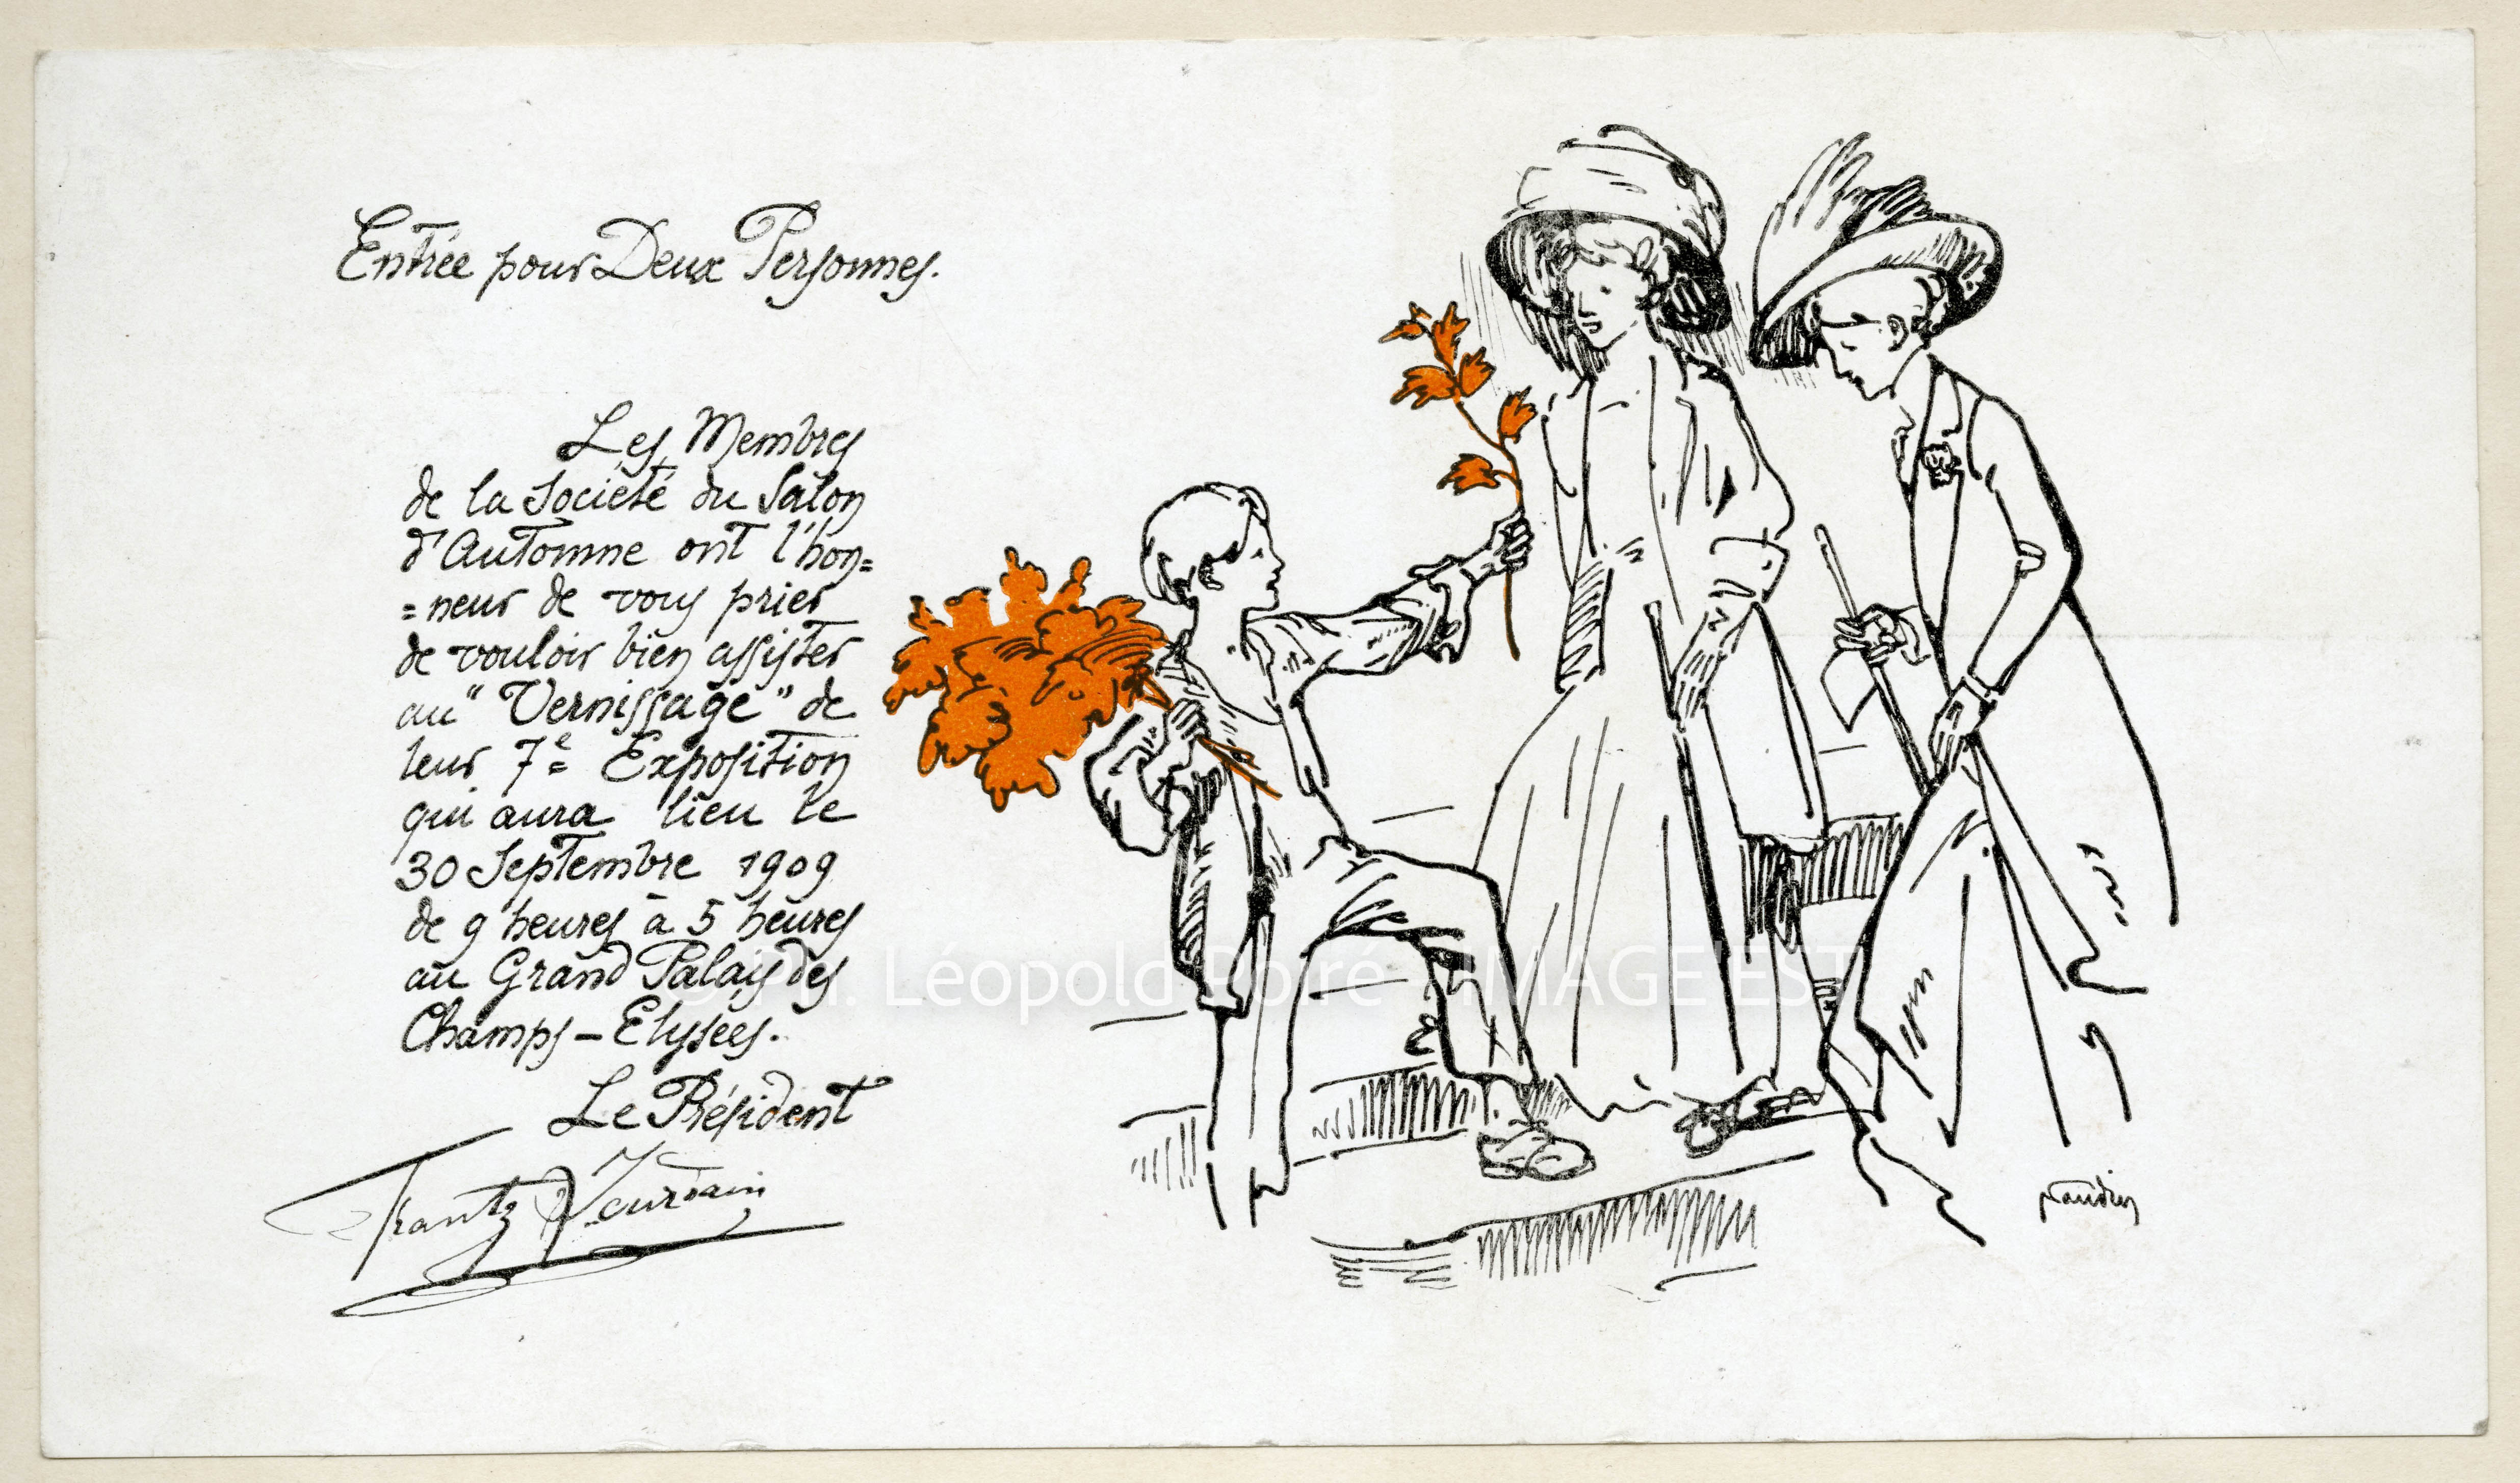 Entrée pour Deux Personnes.
Les Membres
de la Société du Salon
d'Automne ont l'hon=
=neur de vous prier
de vouloir bien assister
au "Vernissage" de
leur 7e Exposition
qui aura lieu le
30 Septembre 1909
de 9 heures à 5 heures
au Grand Palais des
Champs-Elysées.
Le Président
Frantz Jourdain
© Ph. Léopold Poiré - IMAGE'EST